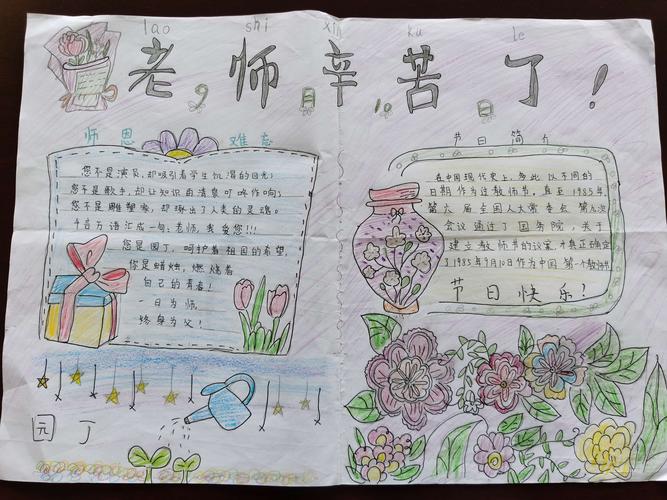 lao shi xin ku le
老师辛苦了!
9月10日
师恩 难忘
您不是演员,却吸引着学生饥渴的目光;
您不是歌手,却让知识的清泉叮咚作响;
您不是雕塑家,却琢出了人类的灵魂。
千言万语汇成一句:老师,我爱您!!!
您是园丁,呵护着祖国的希望,
你是蜡烛,燃烧着
自己的青春!
一日为师
终身为父!
园丁
节日简介
在中国现代史上,多此以不同的
日期作为过教师节,直至1985年,
第六届全国人大常委会第九次
会议通过了国务院,关于
建立教师节的议案,才真正确定
了1985年9月10日作为中国第一个教师节
节日快乐!